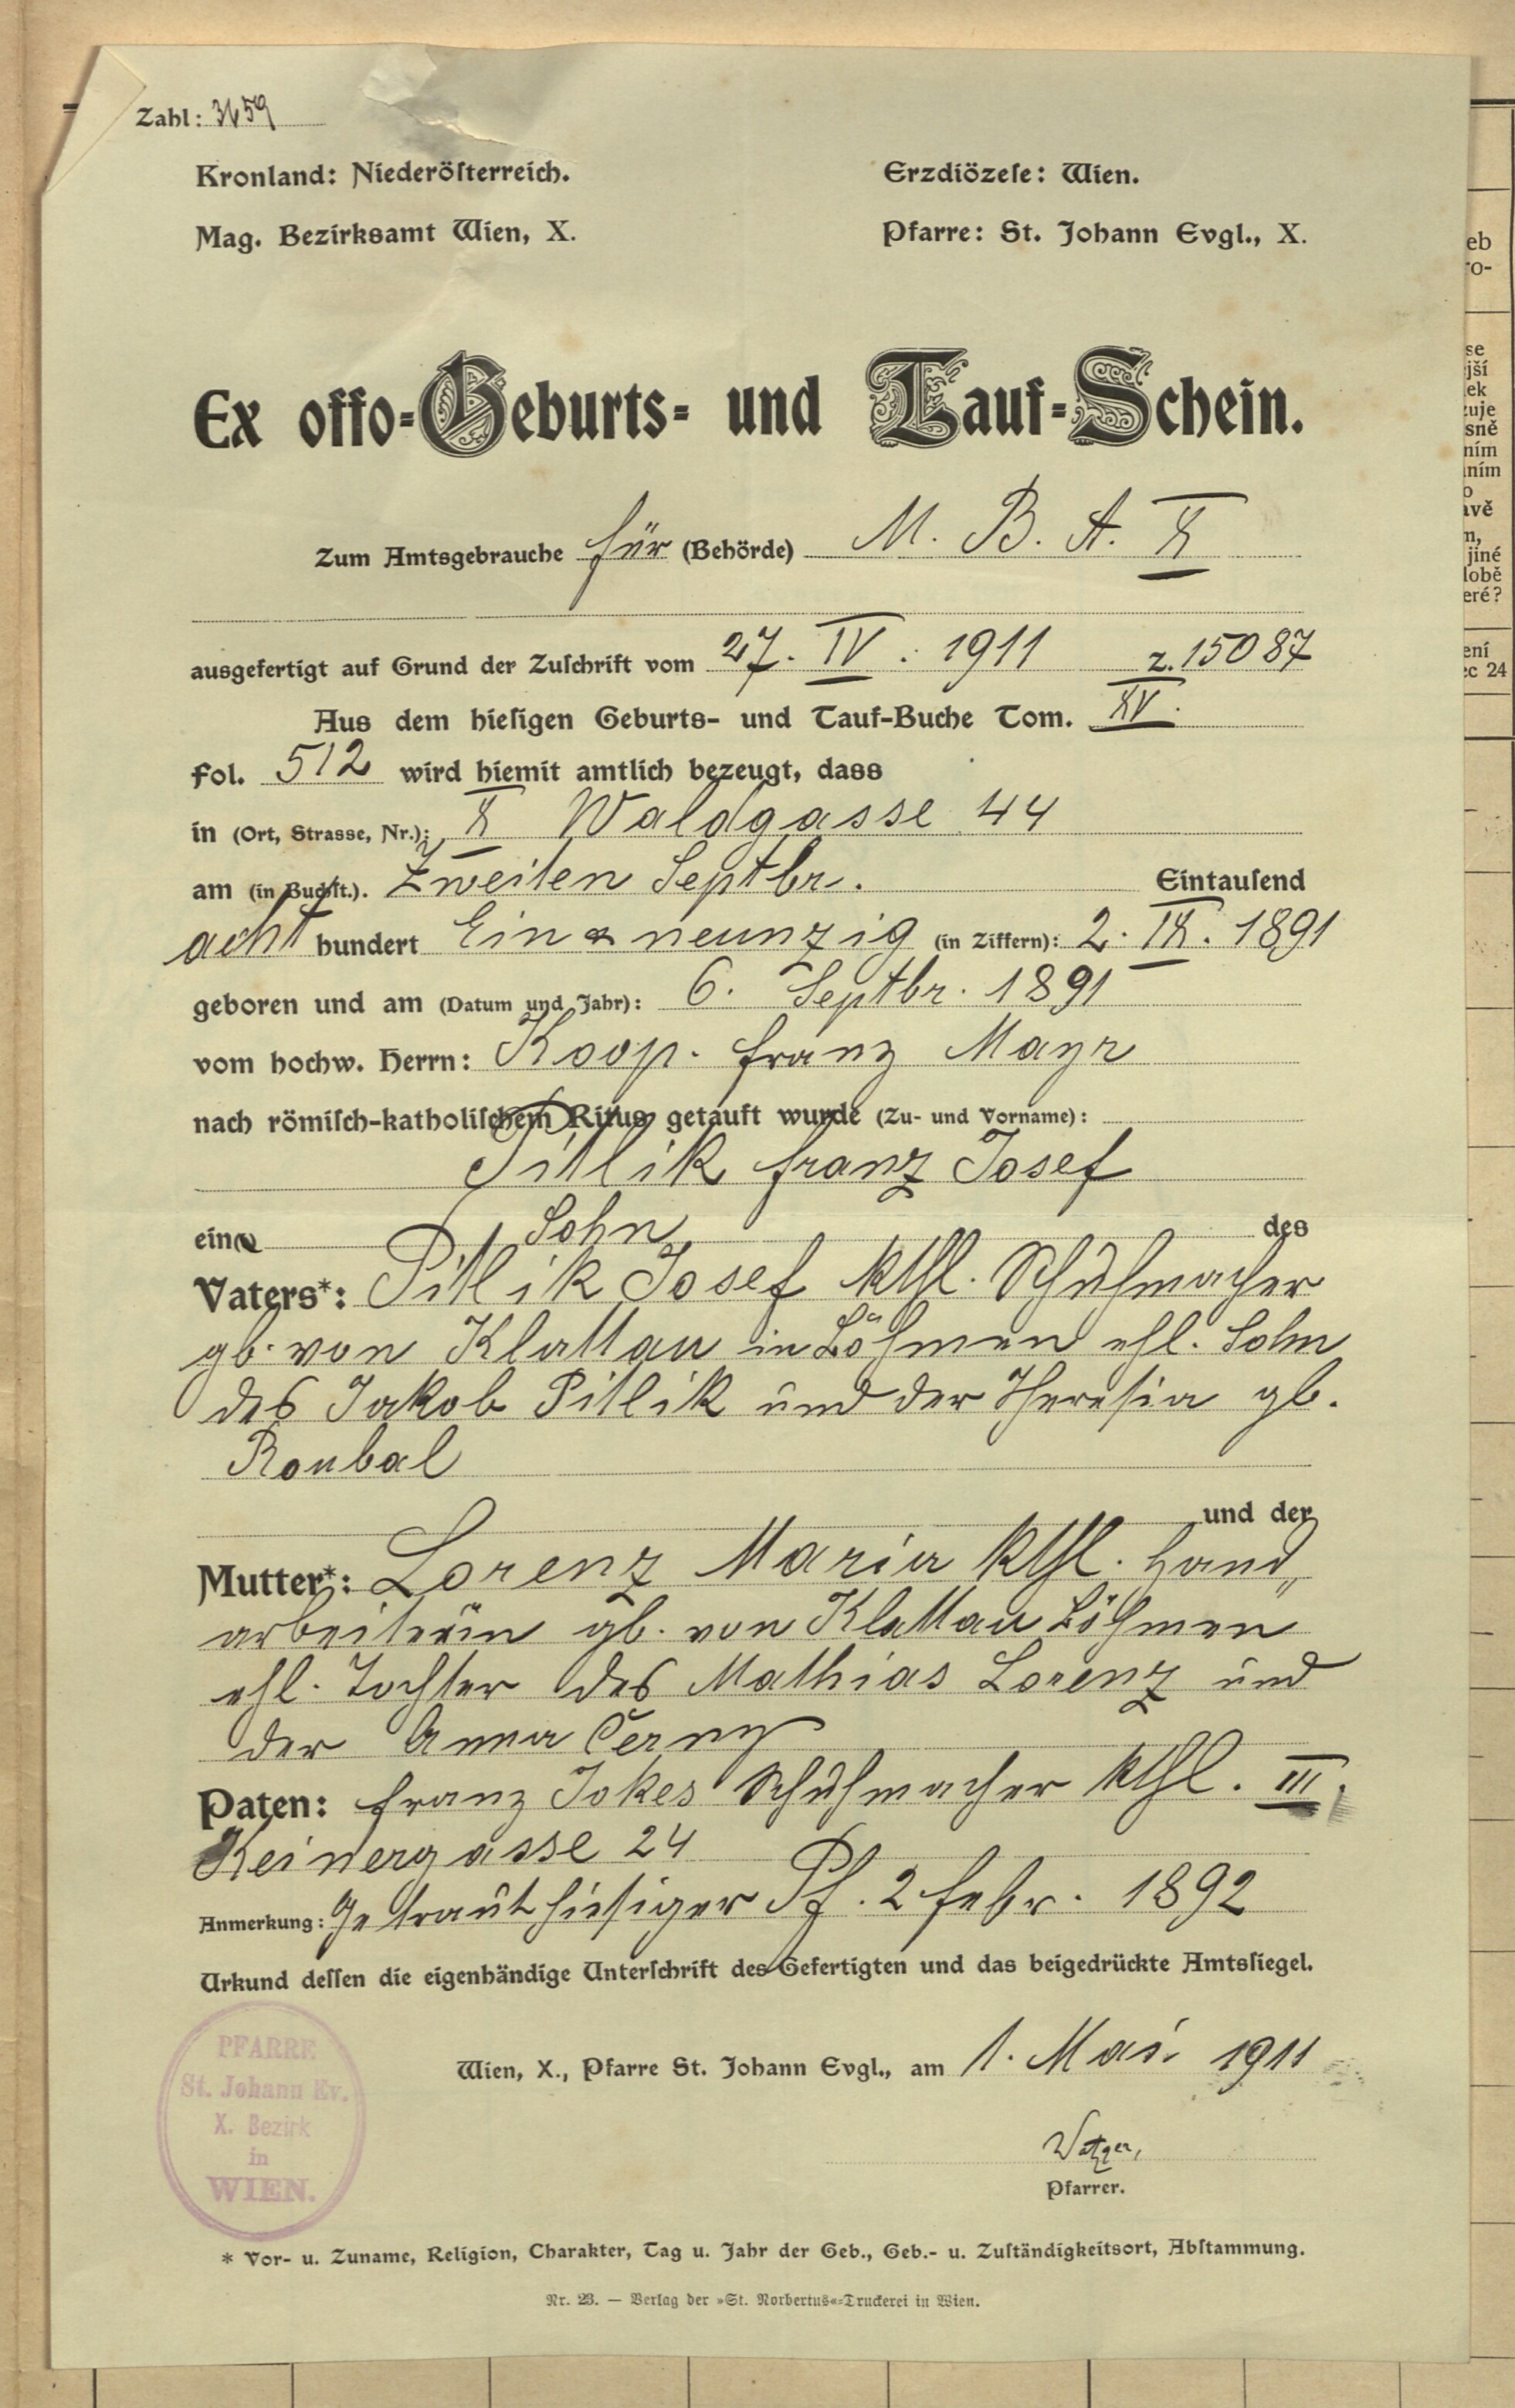 Zahl: 3659
Kronland: Niederösterreich.
Erzdiözese: Wien.
Mag. Bezirksamt Wien, X.
Pfarre: St. Johann Evgl., X.
Ex offo-Geburts- und Tauf-Schein.
Zum Amtsgebrauche für (Behörde) M. B. A. X
ausgefertigt auf Grund der Zuschrift vom 27. IV. 1911 z. 15087
Aus dem hiesigen Geburts- und Tauf-Buche Tom. XV.
Fol. 512 wird hiemit amtlich bezeugt, dass
in (Ort, Strasse, Nr.): X Waldgasse 44
am (in Buchst.). Zweiten Septbr. Eintausend
acht hundert Ein & neunzig (in Ziffern): 2. IX. 1891
geboren und am (Datum und Jahr): 6. Septbr. 1891
vom hochw. Herrn: Koop. Franz Mayr
nach römisch-katholischem Ritus getauft wurde (Zu- und Vorname):
Pitlik Franz Josef
ein Sohn des
Vaters*: Pitlik Josef kthl. Schuhmacher
gb. von Klattau in Böhmen ehl. Sohn
des Jakob Pitlik und der Theresia gb.
Roubal
und der
Mutter*: Lorenz Maria kthl. Hand„
arbeiterin gb. von Klattau Böhmen
ehl. Tochter des Mathias Lorenz und
der Anna Černy
Paten: Franz Jokes Schuhmacher kthl. III.
Keinergasse 24
Anmerkung: Getraut hiesiger Pf. 2 Febr. 1892
Urkund dessen die eigenhändige Unterschrift des Gefertigten und das beigedrückte Amtssiegel.
PFARRE
St. Johann Ev.
X. Bezirk
in
WIEN.
Wien, X., Pfarre St. Johann Evgl., am 1. Mai 1911
Pfarrer.
* Vor- u. Zuname, Religion, Charakter, Tag u. Jahr der Geb., Geb.- u. Zuständigkeitsort, Abstammung.
Nr. 23. — Verlag der »St. Norbertus«-Druckerei in Wien.